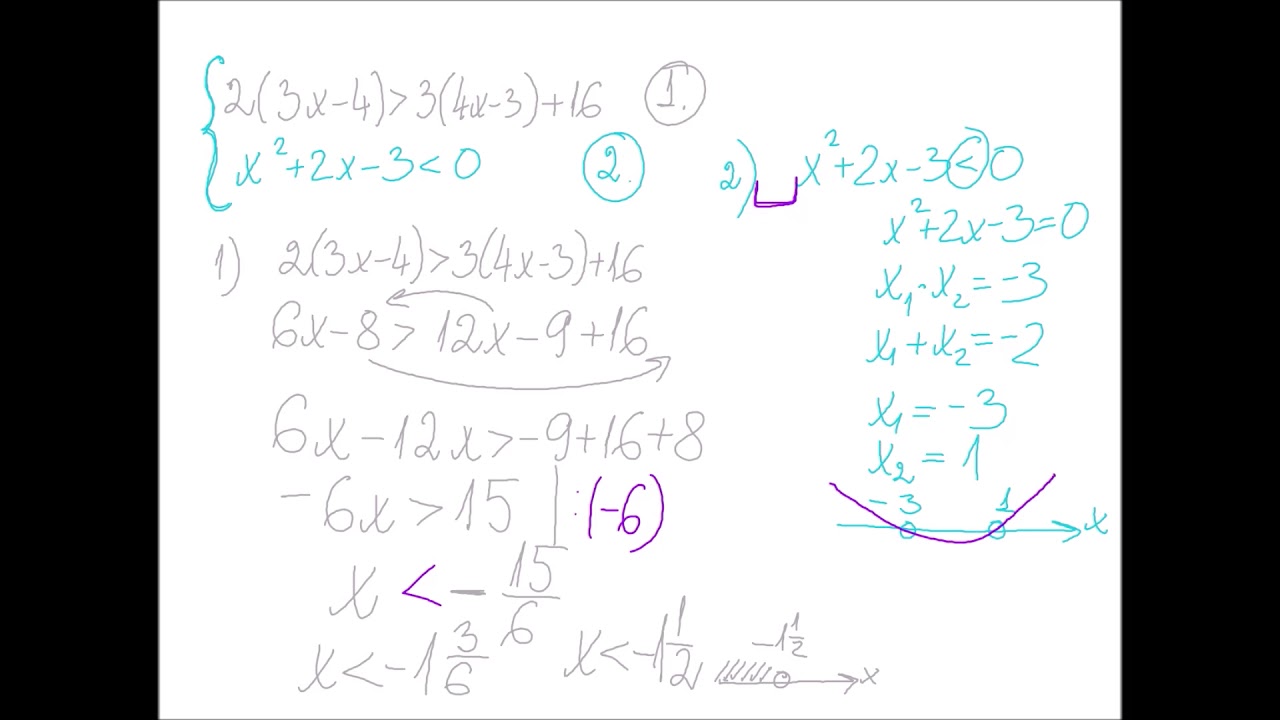 2(3x-4)>3(4x-3)+16 1.
x²+2x-3<0 2.
1) 2(3x-4)>3(4x-3)+16
6x-8>12x-9+16
6x-12x>-9+16+8
-6x>15 | :(-6)
x<-15/6
x<-1 3/6 x<-1 1/2, -1 1/2 x
2) x²+2x-3<0
x²+2x-3=0
x₁·x₂=-3
x₁+x₂=-2
x₁=-3
x₂=1
-3 1 x